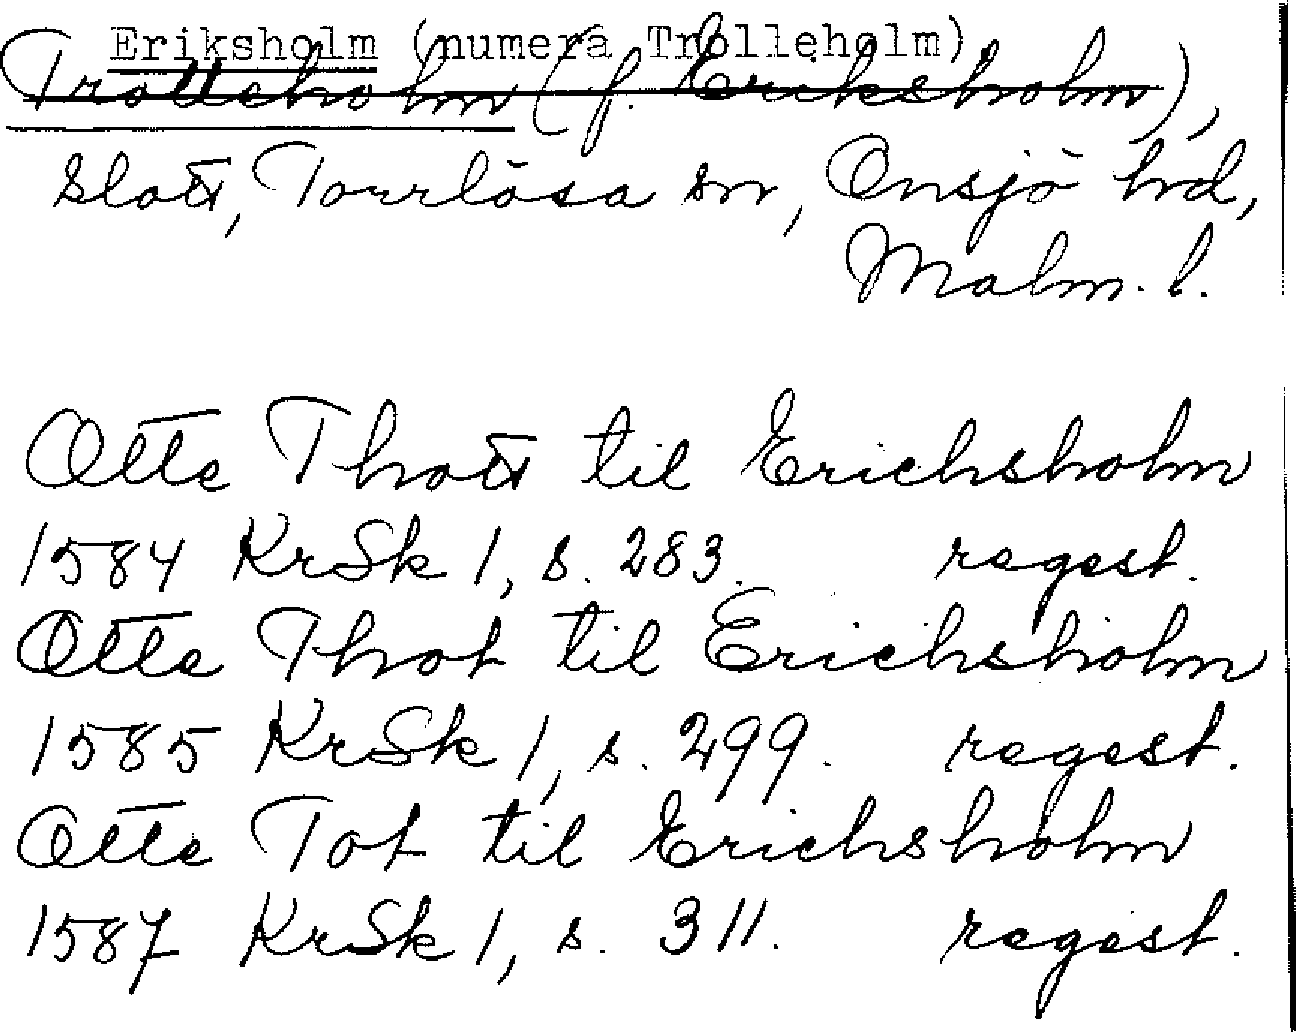 Eriksholm (numera Trolleholm)
Trolleholm (f. Eriksholm),
slott, Torrlösa sn, Onsjö hd,
Malm. l.
Otte Thott til Erichsholm
1584 KrSk 1, s. 283. regest.
Otte Thot til Erichsholm
1585 KrSk 1, s. 299. regest.
Otte Tot til Erichsholm
1587 KrSk 1, s. 311. regest.